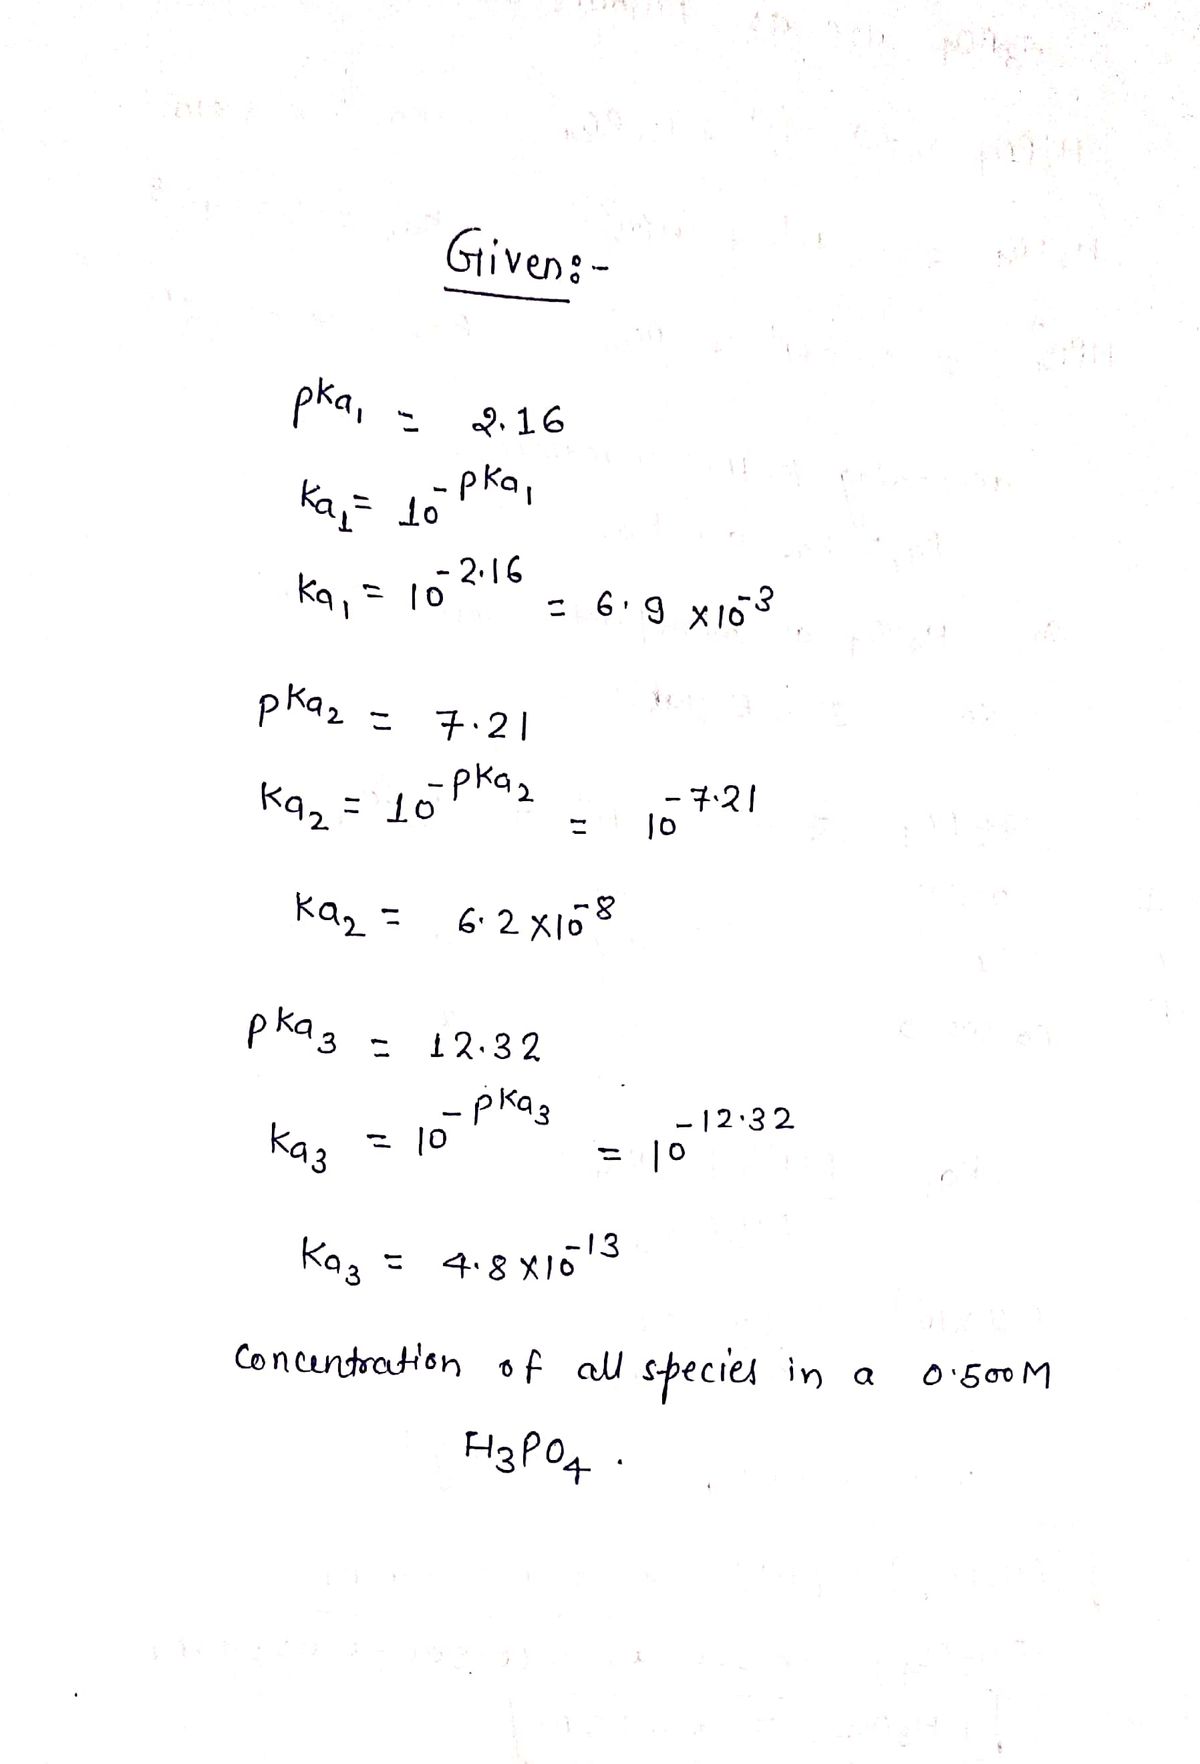 Given:-
pka₁ = 2.16
ka₁ = 10^-pka₁
ka₁ = 10^-2.16 = 6.9 x 10^-3
pka₂ = 7.21
ka₂ = 10^-pka₂ = 10^-7.21
ka₂ = 6.2 x 10^-8
pka₃ = 12.32
ka₃ = 10^-pka₃ = 10^-12.32
ka₃ = 4.8 x 10^-13
Concentration of all species in a 0.500M
H₃PO₄.